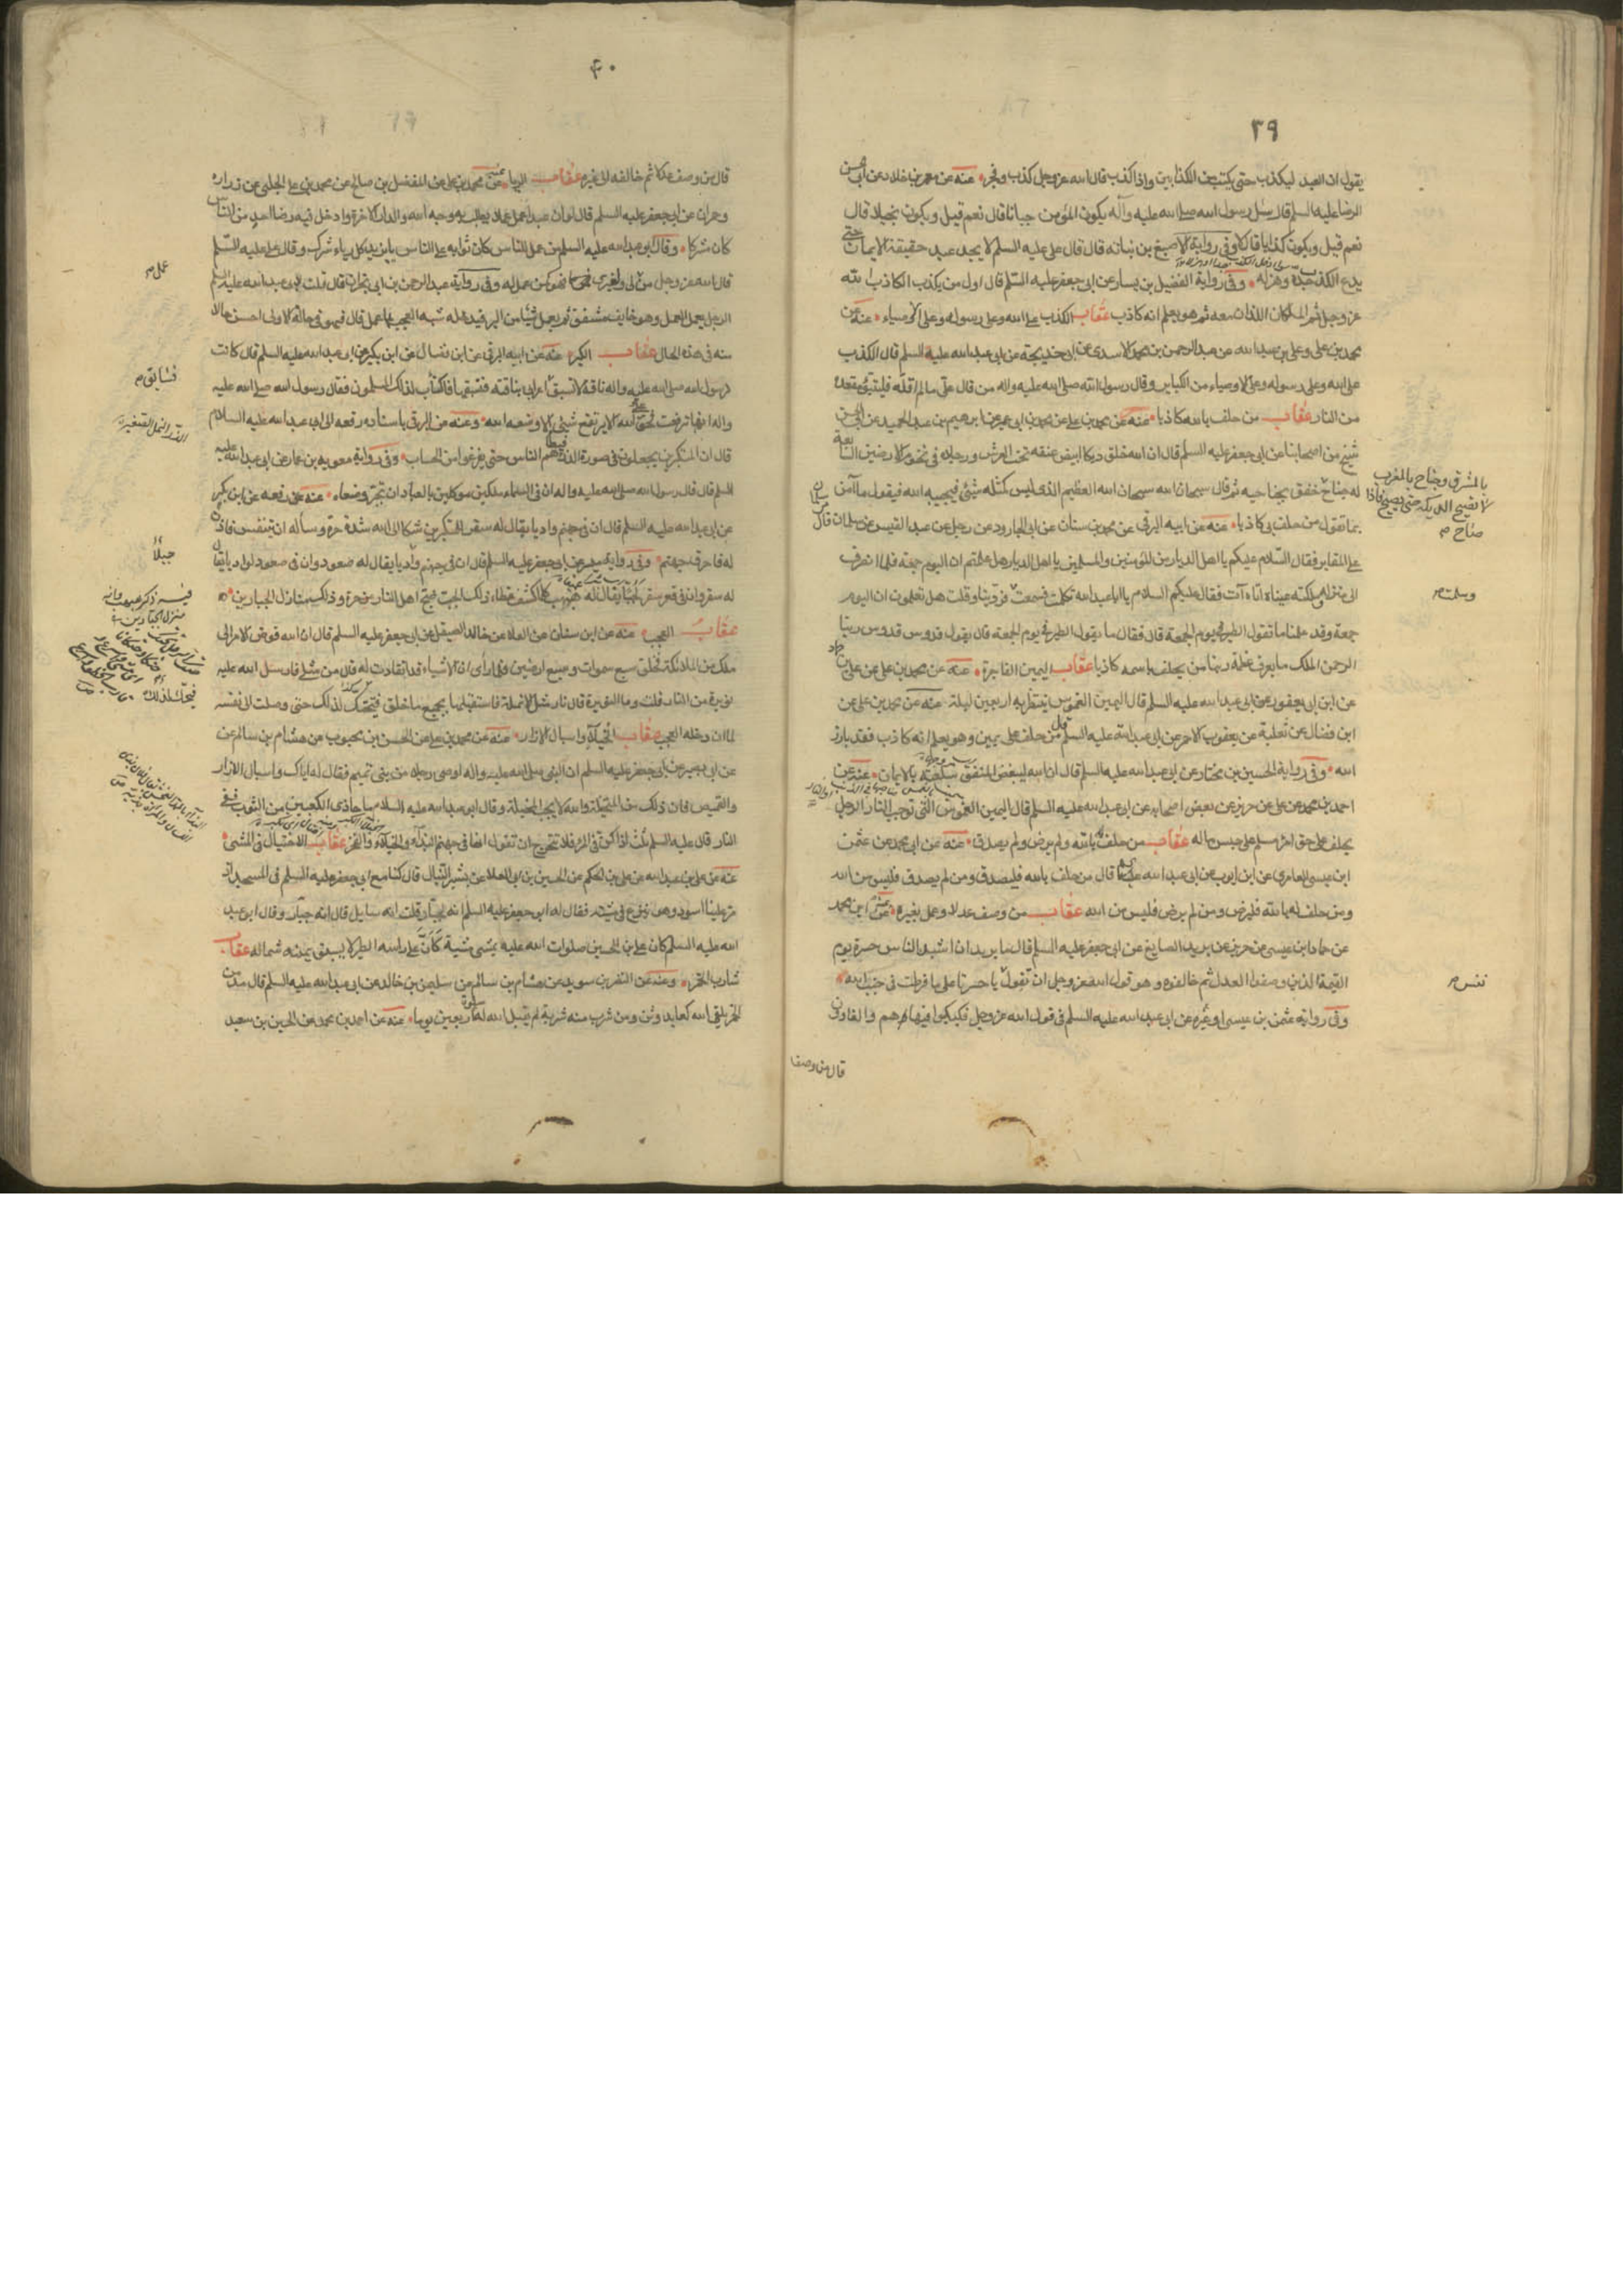 ٣٩
يقول ان العبد ليكذب حتى يكتب من الكذابين واذا كذب قال الله عز وجل كذب وفجر عنه عن معمر بن خلاد عن ابي الحسن
الرضا عليه السلم قال سئل رسول الله صلى الله عليه وآله يكون المؤمن جبانا قال نعم قيل ويكون بخيلا قال
نعم قيل ويكون كذابا قال لا وفي رواية الاصبغ بن نباته قال قال علي عليه السلم لا يجد عبد حقيقة الايمان حتى
يدع الكذب جده وهزله وفي رواية الفضيل بن يسار عن ابي جعفر عليه السلم قال اول من يكذب الكاذب الله
عز وجل ثم الملكان اللذان معه ثم هو يعلم انه كاذب عقاب الكذب على الله وعلى رسوله وعلى الاوصياء عنه عن
محمد بن علي وعلي بن عبد الله عن عبد الرحمن بن محمد الاسدي عن ابي خديجة عن ابي عبد الله عليه السلم قال الكذب
على الله وعلى رسوله وعلى الاوصياء من الكباير وقال رسول الله صلى الله عليه واله من قال علي ما لم اقله فليتبوء مقعده
من النار عقاب من حلف بالله كاذبا عنه عن محمد بن علي عن محمد بن ابي عمير عن ابرهيم بن عبد الحميد عن ابي الحسن
شيخ من اصحابنا عن ابي جعفر عليه السلم قال ان الله خلق ديكا ابيض عنقه تحت العرش ورجلاه في تخوم الارضين السابعة
له جناح خفق بجناحيه ثم قال سبحان الله سبحان الله العظيم الذي ليس كمثله شئ فيجيبه الله فيقول ما آمن
بما تقول من حلف بي كاذبا عنه عن ابيه البرقي عن محمد بن سنان عن ابي الجارود عن رجل عن عبد القيس عن سلمان قال
على المقابر فقال السلام عليكم يا اهل الديار من المؤمنين والمسلمين يا اهل الديار هل علمتم ان اليوم جمعة فلما انصرف
الى منزله وملكته عيناه اتاه آت فقال عليكم السلام يا ابا عبد الله تكلمت فسمعنا وقلت هل تعلمون ان اليوم
جمعة وقد علمنا ما تقول الطير في يوم الجمعة قال فقال ما يقول الطير في يوم الجمعة قال يقول قدوس قدوس ربنا
الرحمن الملك ما يعرف عظمة ربنا من يحلف باسمه كاذبا عقاب اليمين الفاجرة عنه عن محمد بن علي عن علي بن حماد
عن ابن ابي يعفور عن ابي عبد الله عليه السلم قال اليمين الغموس ينتظر بها اربعين ليلة عنه عن محمد بن علي عن
ابن فضال عن ثعلبة عن يعقوب الاحمر عن ابي عبد الله عليه السلم قال من حلف على يمين وهو يعلم انه كاذب فقد بارز
الله وفي رواية الحسين بن مختار عن ابي عبد الله عليه السلم قال ان الله ليبغض المنفق سلعته بالايمان عنه عن
احمد بن محمد عن علي عن حريز عن بعض اصحابه عن ابي عبد الله عليه السلم قال اليمين الغموس التي توجب النار الرجل
يحلف على حق امرء مسلم على حبس ماله عقاب من حلف له بالله ولم يرض ولم يصدق عنه عن ابي محمد عن عثمن
ابن عيسى العامري عن ابن ايوب عن ابي عبد الله قال من حلف بالله فليصدق ومن لم يصدق فليس من الله
ومن حلف له بالله فليرض ومن لم يرض فليس من الله عقاب من وصف عدلا وعمل بغيره
عن حماد ابن عيسى عن حريز عن بريد الصايغ عن ابي جعفر عليه السلم قال يا بريد ان اشد الناس حسرة يوم
القيمة الذين وصفوا العدل ثم خالفوه وهو قول الله عز وجل ان تقول يا حسرتا على ما فرطت في جنب الله
وفي رواية عثمن بن عيسى او غيره عن ابي عبد الله عليه السلم في قول الله عز وجل فكبكبوا فيها هم والغاون
قال من وصف
بالمشرق وجناح بالمغرب
لا تصيح الديكة حتى يصيح فاذا
صاح
نفس
٤٠
قال من وصف عدلا ثم خالفه الى غيره عقاب الريا عنه عن محمد بن علي عن المفضل بن صالح عن محمد بن علي الحلبي عن زراره
وحمران عن ابي جعفر عليه السلم قال لو ان عبدا عمل عملا يطلب به وجه الله والدار الاخرة وادخل فيه رضا احد من الناس
كان مشركا وقال ابو عبد الله عليه السلم من عمل للناس كان ثوابه على الناس يا يزيد كل رياء شرك وقال عليه السلم
قال الله عز وجل من عمل لي ولغيري فهو كمن عمل له وفي رواية عبد الرحمن بن ابي نجران قال قلت لابي عبد الله عليه السلم
الرجل يعمل العمل وهو خايف مشفق ثم يعمل شيئا من البر فيدخله شبه العجب بما عمل قال فهو في حاله الاولى احسن حالا
منه في هذه الحال عقاب الكبر عنه عن ابيه البرقي عن ابن فضال عن ابن بكير عن ابي عبد الله عليه السلم قال كانت
لرسول الله صلى الله عليه واله ناقة لا تسبق اعرابي بناقته فسبقها فاكتأب لذلك المسلمون فقال رسول الله صلى الله عليه
واله انها ترفعت فحق على الله الا يرتفع شئ الا وضعه الله وعنه عن البرقي باسناده رفعه الى ابي عبد الله عليه السلام
قال ان المتكبرين يجعلون في صورة الذر فيطأهم الناس حتى يفرغوا من الحساب وفي رواية معوية بن عمار عن ابي عبد الله عليه
السلم قال قال رسول الله صلى الله عليه واله ان في السماء ملكين موكلين بالعباد فمن تجبر وضعاه عنه عن رفعه عن ابن بكير
عن ابي عبد الله عليه السلم قال ان في جهنم واديا يقال له سقر للمتكبرين شكا الى الله شدة حره وسأله ان يتنفس فاذن
له فاحرق جهنم وفي رواية ميسر عن ابي جعفر عليه السلم قال ان في جهنم واديا يقال له صعود وان في صعود لواديا يقال
له سقر وان في قعر سقر لجبا يقال له هبهب كلما كشف غطاء ذلك الجب ضج اهل النار من حره وذلك منازل الجبارين
عقاب العجب عنه عن ابن سنان عن العلا عن خالد الصيقل عن ابي جعفر عليه السلم قال ان الله فوض الامر الى
ملك من الملائكة فخلق سبع سموات وسبع ارضين فلما رأى ان الاشياء قد انقادت له قال من مثلي فارسل الله عليه
نويرة من النار قلت وما النويرة قال نار مثل الانملة فاستقبلها بجميع ما خلق فتخبت لذلك حتى وصلت الى نفسه
لما ان دخله العجب عقاب الخيلاء واسبال الازار عنه عن محمد بن علي عن الحسن بن محبوب عن هشام بن سالم عن
عن ابي بصير عن ابي جعفر عليه السلم ان النبي صلى الله عليه واله اوصى رجلا من بني تميم فقال له اياك واسبال الازار
والقميص فان ذلك من المخيلة والله لا يحب المخيلة وقال ابو عبد الله عليه السلام ما حاذى الكعبين من الثوب ففي
النار قال عليه السلم ثلث اذا كن في المرء فلا تتحرج ان تقول انها في جهنم البذاء والخيلاء والفخر عقاب الاختيال في المشي
عنه عن علي بن عبد الله عن علي بن الحكم عن الحسين بن ابي العلا عن بشير النبال قال كنا مع ابي جعفر عليه السلم في المسجد اذ
مر علينا اسود وهو ينزع في مشيته فقال له ابو جعفر عليه السلم انه لجبار قلت انه سايل قال انه جبار وقال ابو عبد
الله عليه السلم كان علي بن الحسين صلوات الله عليه يمشي مشية كان على راسه الطير لا يسبق يمينه شماله عقاب
شارب الخمر وعنه عن النضر بن سويد عن هشام بن سالم عن سليمن بن خالد عن ابي عبد الله عليه السلم قال مدمن
الخمر يلقى الله كعابد وثن ومن شرب منه شربة لم يقبل الله له صلوة اربعين يوما عنه عن احمد بن محمد عن الحسين بن سعيد